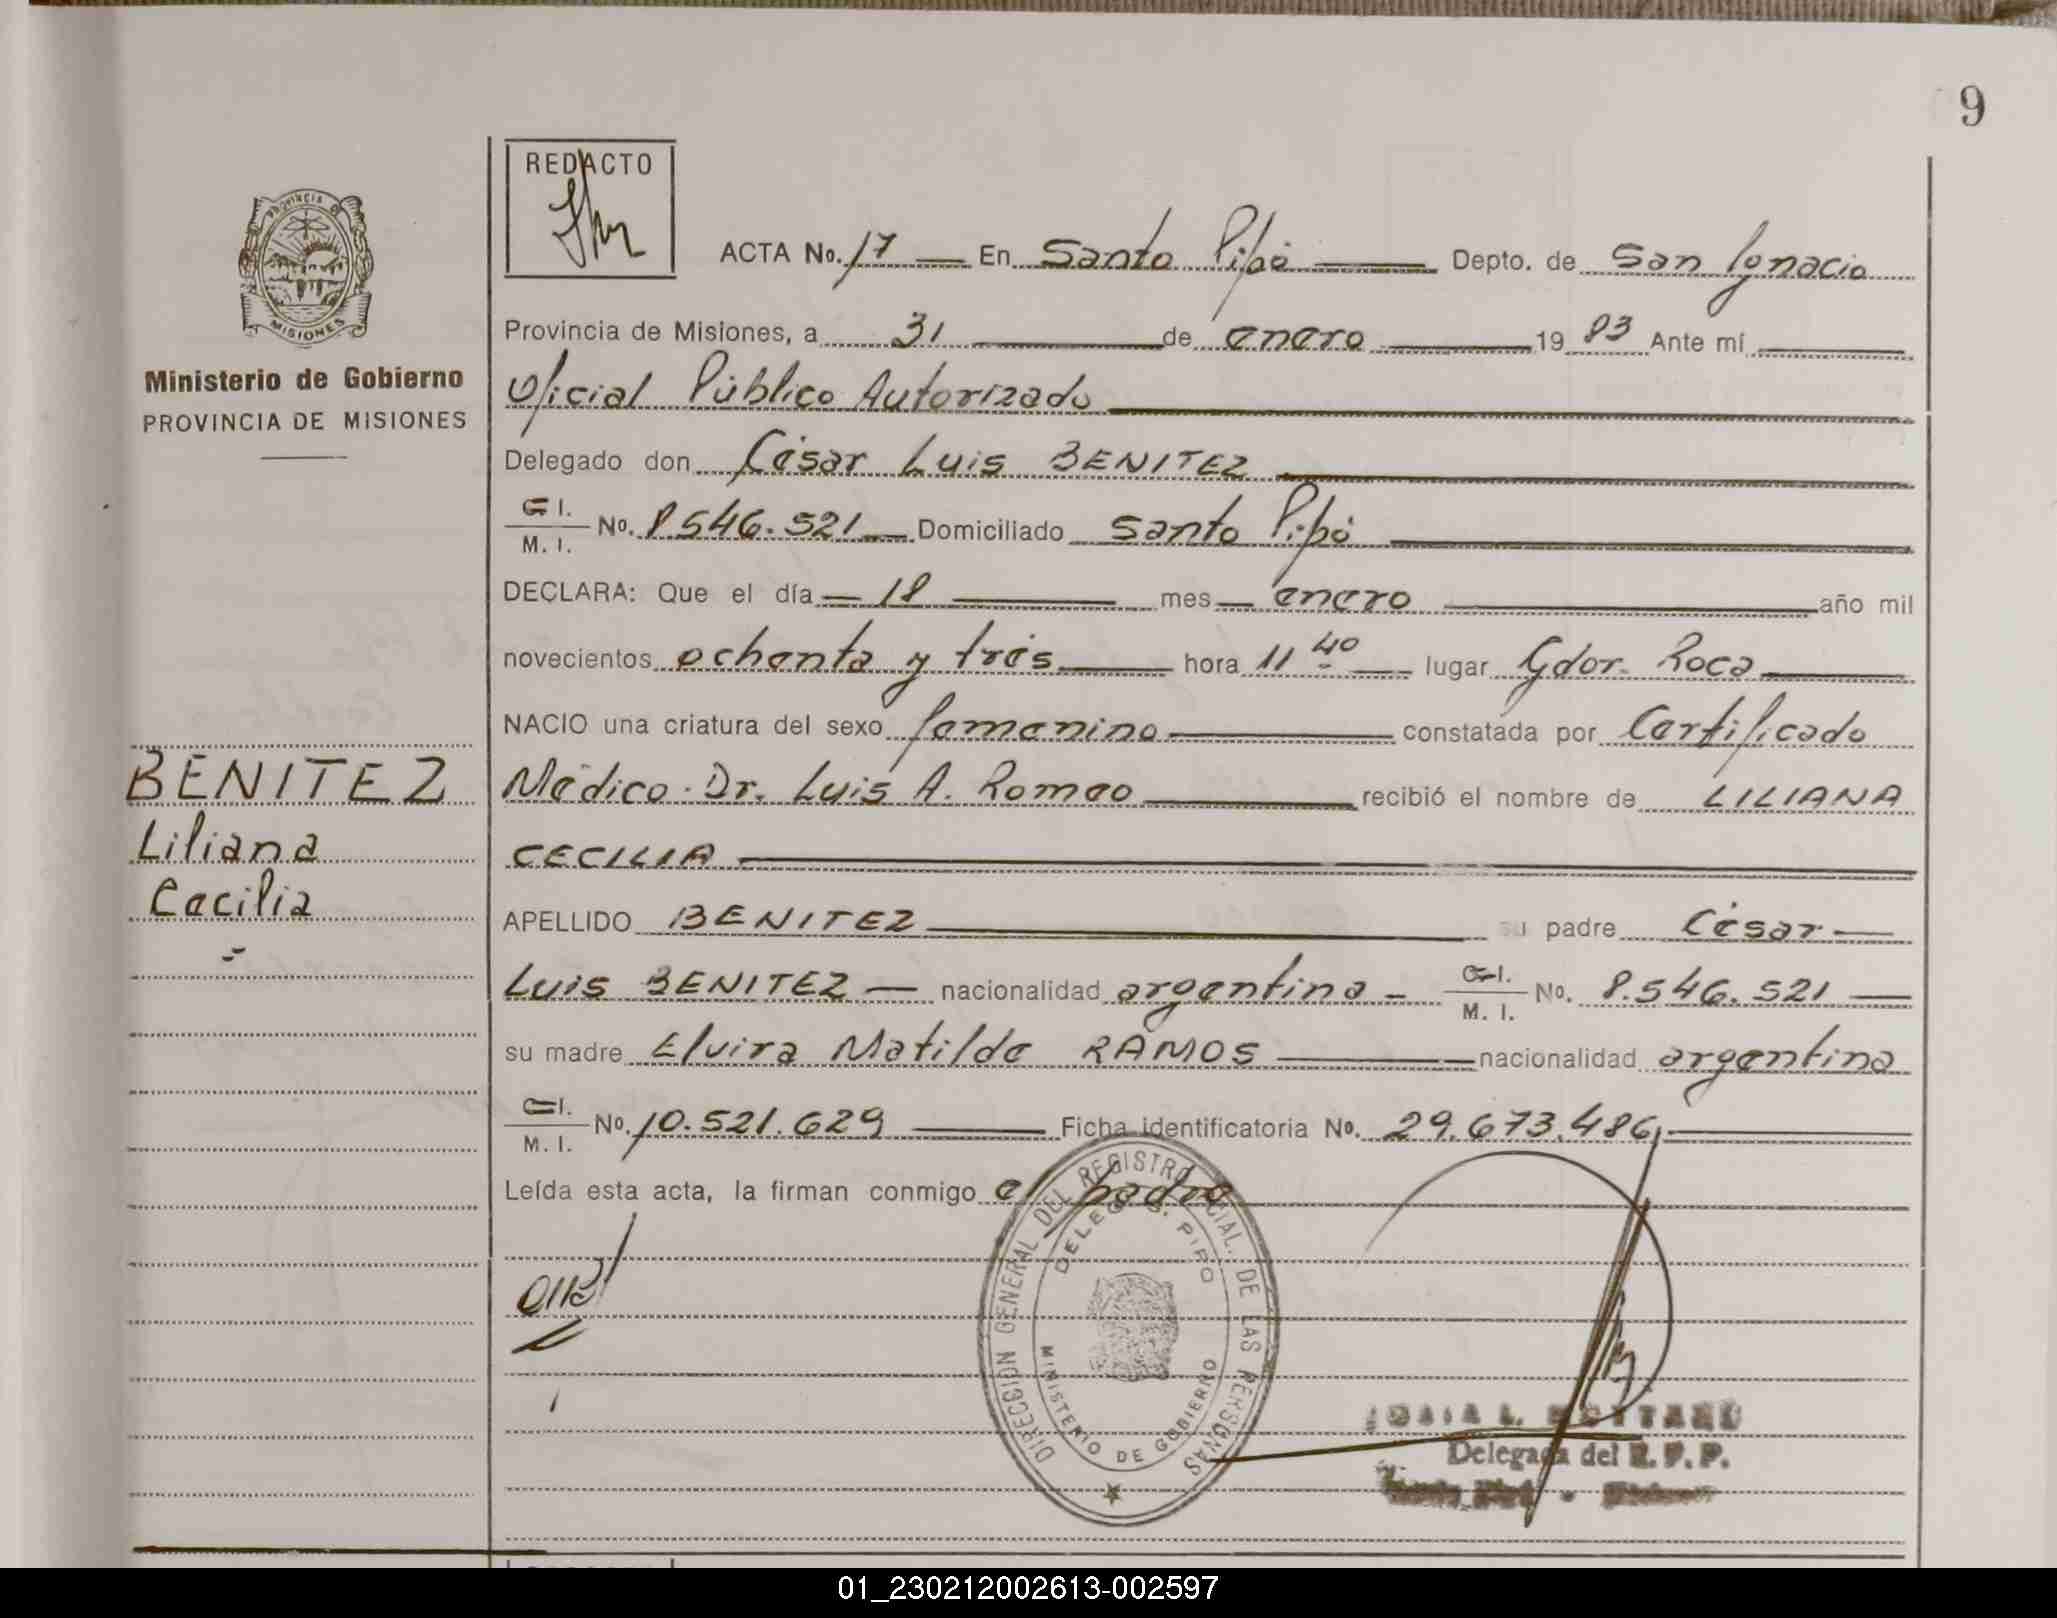 9
REDACTO
PROVINCIA DE
MISIONES
Ministerio de Gobierno
PROVINCIA DE MISIONES
ACTA No. 17 En Santo Pipó Depto. de San Ignacio
Provincia de Misiones, a 31 de enero 1983 Ante mí
Oficial Público Autorizado
Delegado don César Luis BENITEZ
C. I.
M. I. No. 8.546.521 Domiciliado Santo Pipó
DECLARA: Que el día 18 mes enero año mil
novecientos ochenta y tres hora 11 40 lugar Gdor. Roca
NACIO una criatura del sexo femenino constatada por Certificado
Médico. Dr. Luis A. Romeo recibió el nombre de LILIANA
CECILIA
APELLIDO BENITEZ su padre César
Luis BENITEZ nacionalidad argentina C. I.
M. I. No. 8.546.521
su madre Elvira Matilde RAMOS nacionalidad argentina
C. I.
M. I. No. 10.521.629 Ficha identificatoria No. 29.673.486
Leída esta acta, la firman conmigo el padre
BENITEZ
Liliana
Cecilia
DIRECCION GENERAL DEL REGISTRO PROVINCIAL DE LAS PERSONAS
DELEG. S. PIPO
MINISTERIO DE GOBIERNO
Delegada del R. P. P.
01_230212002613-002597